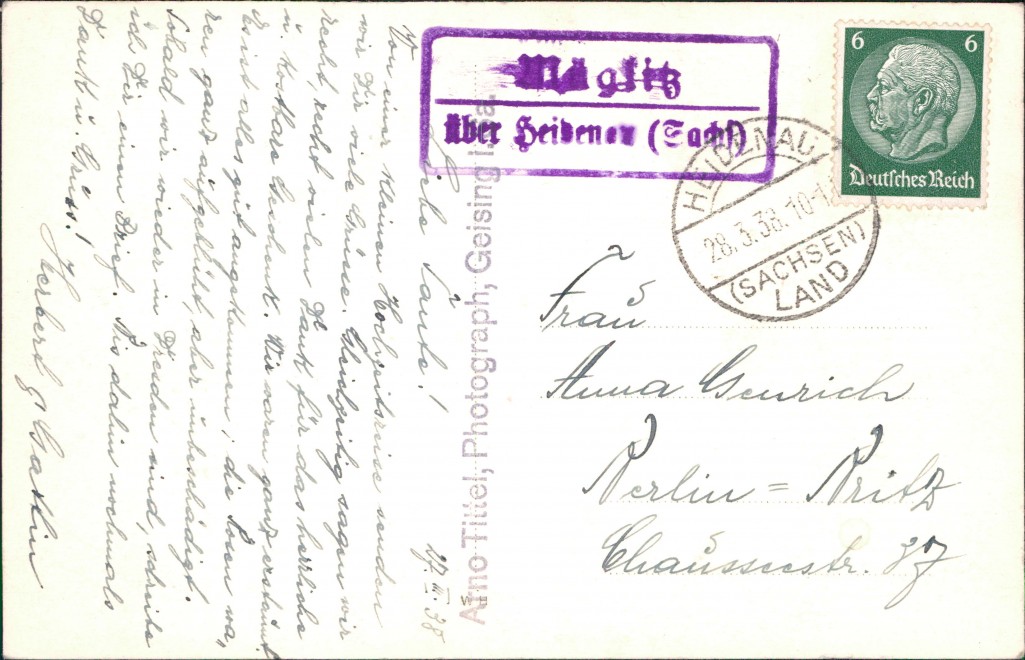 27. III. 38
Liebe Tante!
Von einer kleinen Hochzeitsreise senden
wir Dir viele Grüsse. Gleichzeitig sagen wir
recht, recht vielen Dank für das herrliche
u. kostbare Geschenk. Wir waren ganz erstaunt.
Es ist alles gut angekommen, die Rosen wa-
ren ganz aufgeblüht, aber unbeschädigt.
Sobald wir wieder in Dresden sind, schreibe
ich Dir einen Brief. Bis dahin nochmals
Dank u. Gruss!
Herbert
Arno Tittel, Photograph, Geising i. Sa.
Müglitz
über Heidenau (Sachs)
HEIDENAU
28.3.38.10-1
(SACHSEN)
LAND
6 6
Deutsches Reich
Frau
Anna Genrich
Berlin = Britz
Chausseestr. 37